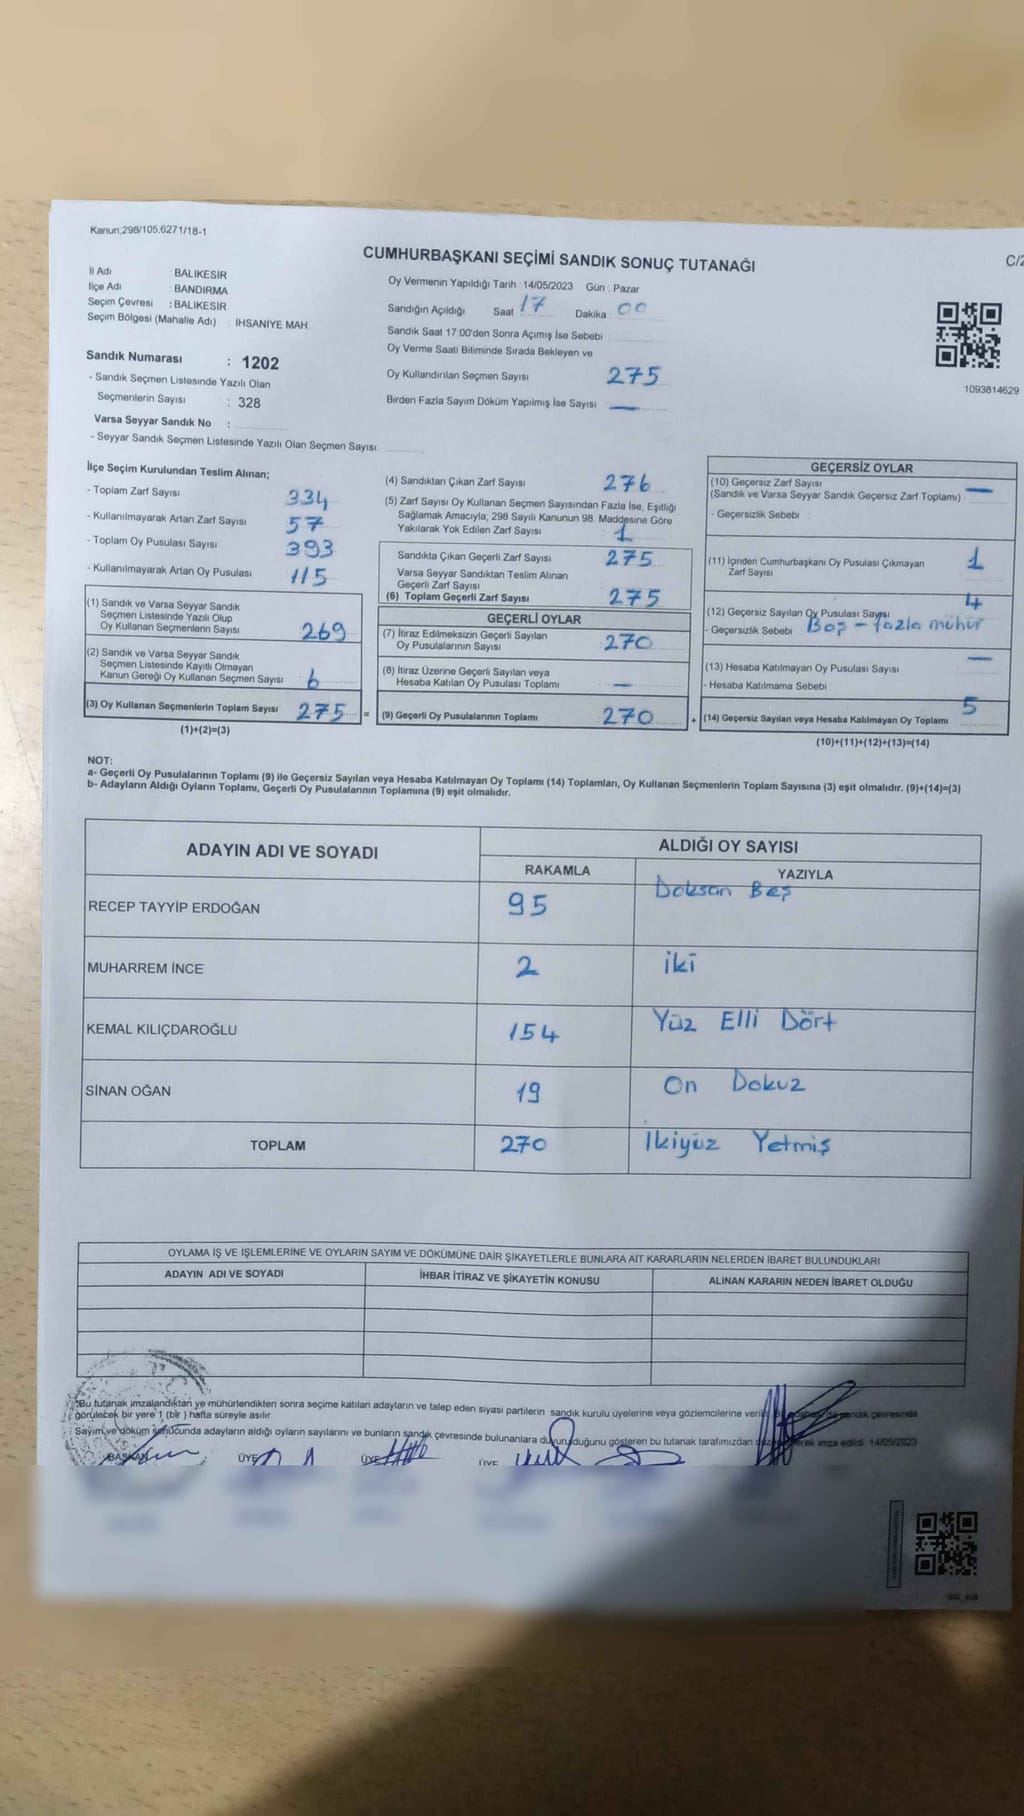 Kanun,298/105,6271/18-1
CUMHURBAŞKANI SEÇİMİ SANDIK SONUÇ TUTANAĞI
C/2
İl Adı : BALIKESİR
İlçe Adı : BANDIRMA
Seçim Çevresi : BALIKESİR
Seçim Bölgesi (Mahalle Adı) : İHSANİYE MAH.
Oy Vermenin Yapıldığı Tarih :14/05/2023 Gün : Pazar
Sandığın Açıldığı Saat 17 Dakika : 00
Sandık Saat 17:00'den Sonra Açımış İse Sebebi :
Oy Verme Saati Bitiminde Sırada Bekleyen ve
Oy Kullandırılan Seçmen Sayısı 275
Birden Fazla Sayım Döküm Yapılmış İse Sayısı —
1093814629
Sandık Numarası : 1202
- Sandık Seçmen Listesinde Yazılı Olan
Seçmenlerin Sayısı : 328
Varsa Seyyar Sandık No :
- Seyyar Sandık Seçmen Listesinde Yazılı Olan Seçmen Sayısı:
İlçe Seçim Kurulundan Teslim Alınan;
- Toplam Zarf Sayısı 334
- Kullanılmayarak Artan Zarf Sayısı 57
- Toplam Oy Pusulası Sayısı 393
- Kullanılmayarak Artan Oy Pusulası 115
(1) Sandık ve Varsa Seyyar Sandık
Seçmen Listesinde Yazılı Olup
Oy Kullanan Seçmenlerin Sayısı 269
(2) Sandık ve Varsa Seyyar Sandık
Seçmen Listesinde Kayıtlı Olmayan
Kanun Gereği Oy Kullanan Seçmen Sayısı 6
(3) Oy Kullanan Seçmenlerin Toplam Sayısı 275 =
(1)+(2)=(3)
(4) Sandıktan Çıkan Zarf Sayısı 276
(5) Zarf Sayısı Oy Kullanan Seçmen Sayısından Fazla İse, Eşitliği
Sağlamak Amacıyla, 298 Sayılı Kanunun 98. Maddesine Göre
Yakılarak Yok Edilen Zarf Sayısı 1
Sandıkta Çıkan Geçerli Zarf Sayısı 275
Varsa Seyyar Sandıktan Teslim Alınan
Geçerli Zarf Sayısı
(6) Toplam Geçerli Zarf Sayısı 275
GEÇERLİ OYLAR
(7) İtiraz Edilmeksizin Geçerli Sayılan
Oy Pusulalarının Sayısı 270
(8) İtiraz Üzerine Geçerli Sayılan veya
Hesaba Katılan Oy Pusulası Toplamı —
(9) Geçerli Oy Pusulalarının Toplamı 270 +
GEÇERSİZ OYLAR
(10) Geçersiz Zarf Sayısı —
(Sandık ve Varsa Seyyar Sandık Geçersiz Zarf Toplamı)
- Geçersizlik Sebebi :
(11) İçinden Cumhurbaşkanı Oy Pusulası Çıkmayan 1
Zarf Sayısı
(12) Geçersiz Sayılan Oy Pusulası Sayısı 4
- Geçersizlik Sebebi Boş - fazla mühür
(13) Hesaba Katılmayan Oy Pusulası Sayısı —
- Hesaba Katılmama Sebebi
(14) Geçersiz Sayılan veya Hesaba Katılmayan Oy Toplamı 5
(10)+(11)+(12)+(13)=(14)
NOT:
a- Geçerli Oy Pusulalarının Toplamı (9) ile Geçersiz Sayılan veya Hesaba Katılmayan Oy Toplamı (14) Toplamları, Oy Kullanan Seçmenlerin Toplam Sayısına (3) eşit olmalıdır. (9)+(14)=(3)
b- Adayların Aldığı Oyların Toplamı, Geçerli Oy Pusulalarının Toplamına (9) eşit olmalıdır.
ADAYIN ADI VE SOYADI
ALDIĞI OY SAYISI
RAKAMLA YAZIYLA
RECEP TAYYİP ERDOĞAN 95 Doksan Beş
MUHARREM İNCE 2 iki
KEMAL KILIÇDAROĞLU 154 Yüz Elli Dört
SİNAN OĞAN 19 On Dokuz
TOPLAM 270 İkiyüz Yetmiş
OYLAMA İŞ VE İŞLEMLERİNE VE OYLARIN SAYIM VE DÖKÜMÜNE DAİR ŞİKAYETLERLE BUNLARA AİT KARARLARIN NELERDEN İBARET BULUNDUKLARI
ADAYIN ADI VE SOYADI İHBAR İTİRAZ VE ŞİKAYETİN KONUSU ALINAN KARARIN NEDEN İBARET OLDUĞU
Bu tutanak imzalandıktan ve mühürlendikten sonra seçime katılan adayların ve talep eden siyasi partilerin sandık kurulu üyelerine veya gözlemcilerine sandık çevresinde
görülecek bir yere 1 (bir) hafta süreyle asılır.
Sayım ve döküm sonucunda adayların aldığı oyların sayılarını ve bunların sandık çevresinde bulunanlara duyurulduğunu gösteren bu tutanak tarafımızdan imza edildi. 14/05/2023
BAŞKAN ÜYE ÜYE ÜYE